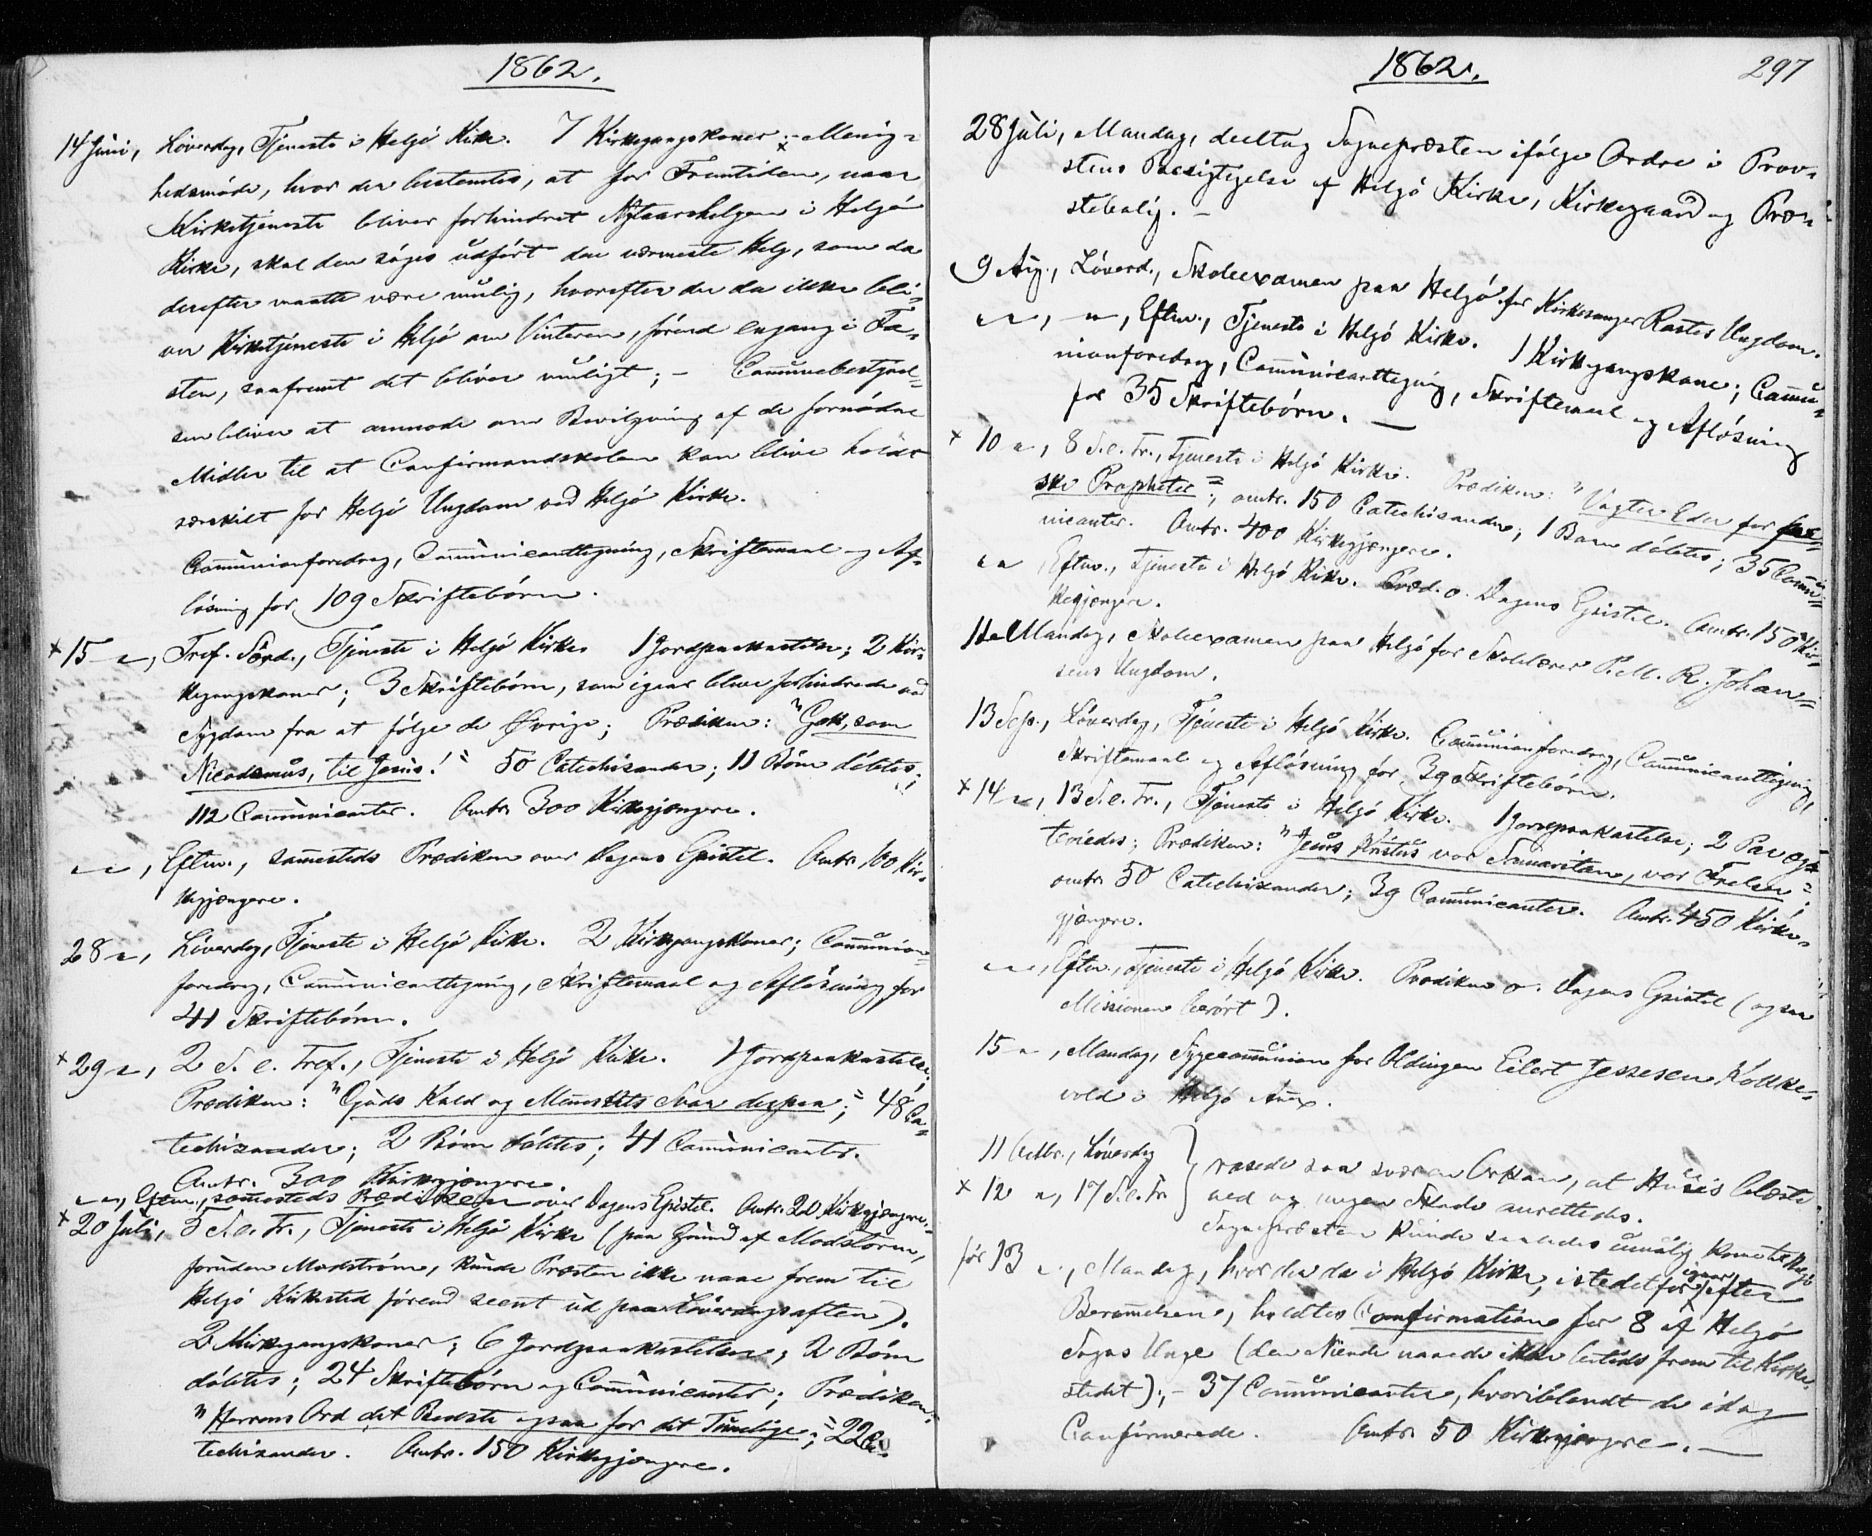 1862.
14 Juni, Löverdag, Tjeneste i Helgö Kirke. 7 Kirkegangskoner; – Menig=
hedsmöde, hvor der bestemtes, at for Fremtiden, naar
Kirketjeneste bliver forhindret Nytaarshelgen i Helgö
Kirke, skal den söges udfört den nærmeste Helg, som da
derefter maatte være mulig, hvorefter der da ikke bli=
ver Kirketjeneste i Helgö om Vinteren, förend engang i Fa=
sten, saafremt det bliver muligt; – Communebestyrel=
sen bliver at anmode om Bevilgning af de fornödne
Midler til at Confirmandskolen kan blive holdt
særskilt for Helgö Ungdom ved Helgö Kirke.
Communionforedrag, Communicanttegning, Skriftemaal og Af=
lösning for 109 Skriftebörn.
× 15 –, Tref. Sönd., Tjeneste i Helgö Kirke 1 Jordpaakastelse; 2 Kir=
kegangskoner; 3 Skriftebörn, som igaar bleve forhindrede ved
Sygdom fra at fölge de Övrige; Prædiken: "Gak, som
Nicodemus, til Jesus!" 50 Catechisander; 11 Börn döbtes;
112 Communicanter. Omtr. 300 Kirkegjængere.
– –, Efterm., sammesteds Prædiken over Dagens Epistel. Omtr. 100 Kir=
kegjængere.
28 –, Löverdag, Tjeneste i Helgö Kirke. 2 Kirkegangskoner; Communion=
foredrag, Communicanttegning, Skriftemaal og Aflösning for
41 Skriftebörn.
× 29 –, 2 S. e. Tref., Tjeneste i Helgö Kirke. 1 Jordpaakastelse;
Prædiken: "Guds Kald og Menneskets Svar derpaa;" 48 Ca=
techisander; 2 Börn döbtes; 41 Communicanter.
Omtr. 300 Kirkegjængere.
– –, Efterm., sammesteds Prædiken over Dagens Epistel. Omtr. 20 Kirkegjængere.
× 20 Juli, 5 S. e. Tr., Tjeneste i Helgö Kirke (paa Grund af Modstorm,
foruden Modström, kunde Præsten ikke naae frem til
Helgö Kirkested förend seent ud paa Löverdagsaften).
2 Kirkegangskoner; 6 Jordpaakastelser; 2 Börn
döbtes; 24 Skriftebörn og Communicanter; Prædiken:
"Herrens Ord det Bedste ogsaa for det Timelige;" 22 Ca=
techisander. Omtr. 150 Kirkegjængere.
1862. 297
28 Juli, Mandag, deeltog Sognepræsten ifölge Ordre i Prov=
stens Besigtigelse af Helgö Kirke, Kirkegaard og Præ=
stebolig. –
9 Aug., Löverd., Skoleexamen paa Helgö for Kirkesanger Rasters Ungdom.
– –, –, Efterm., Tjeneste i Helgö Kirke. 1 Kirkegangskone; Commu=
nionforedrag, Communicanttegning, Skriftemaal og Aflösning
for 35 Skriftebörn. –
× 10 –, 8 S. e. Tr., Tjeneste i Helgö Kirke. Prædiken: "Vogter Eder for fal=
ske Propheter"; omtr. 150 Catechisander; 1 Barn döbtes; 35 Commu=
nicanter. Omtr. 400 Kirkegjængere.
– – Efterm., Tjeneste i Helgö Kirke. Præd. o. Dagens Epistel. Omtr. 150 Kir=
kegjængere.
11 – Mandag, Skoleexamen paa Helgö for Skolelærer P. M. R. Johan=
sens Ungdom.
13 Sep., Löverdag, Tjeneste i Helgö Kirke. Communionforedrag, Communicanttegning,
Skriftemaal og Aflösning for 39 Skriftebörn.
× 14 –, 13 S. e. Tr., Tjeneste i Helgö Kirke. 1 Jordpaakastelse; 2 Par ægte=
viedes; Prædiken: "Jesus Kristus vor Samaritan, vor Frelser;"
omtr. 50 Catechisander; 39 Communicanter. Omtr. 450 Kirke=
gjængere.
– –, Efterm., Tjeneste i Helgö Kirke. Prædiken o. Dagens Epistel (ogsaa
Missionen berört).
15 –, Mandag, Sygecommunion for Oldingen Eilert Jessesen Kolke=
vold i Helgö Annex.
11 Octbr., Löverdag
× 12 –, 17 S. e. Tr. } rasede saa svær en Orkan, at Huse blæste
ned og megen Skade anrettedes.
Sognepræsten kunde saaledes umulig komme til Helgö
för 13 –, Mandag, hvor der da i Helgö Kirke, istedetfor igaar, efter
Berammelsen, holdtes Confirmation for 8 af Helgö
Sogns Unge (den Niende naaede ikke betids frem til Kirke=
stedet); – 37 Communicanter, hvoriblandt de idag
Confirmerede. Omtr. 50 Kirkegjængere. –